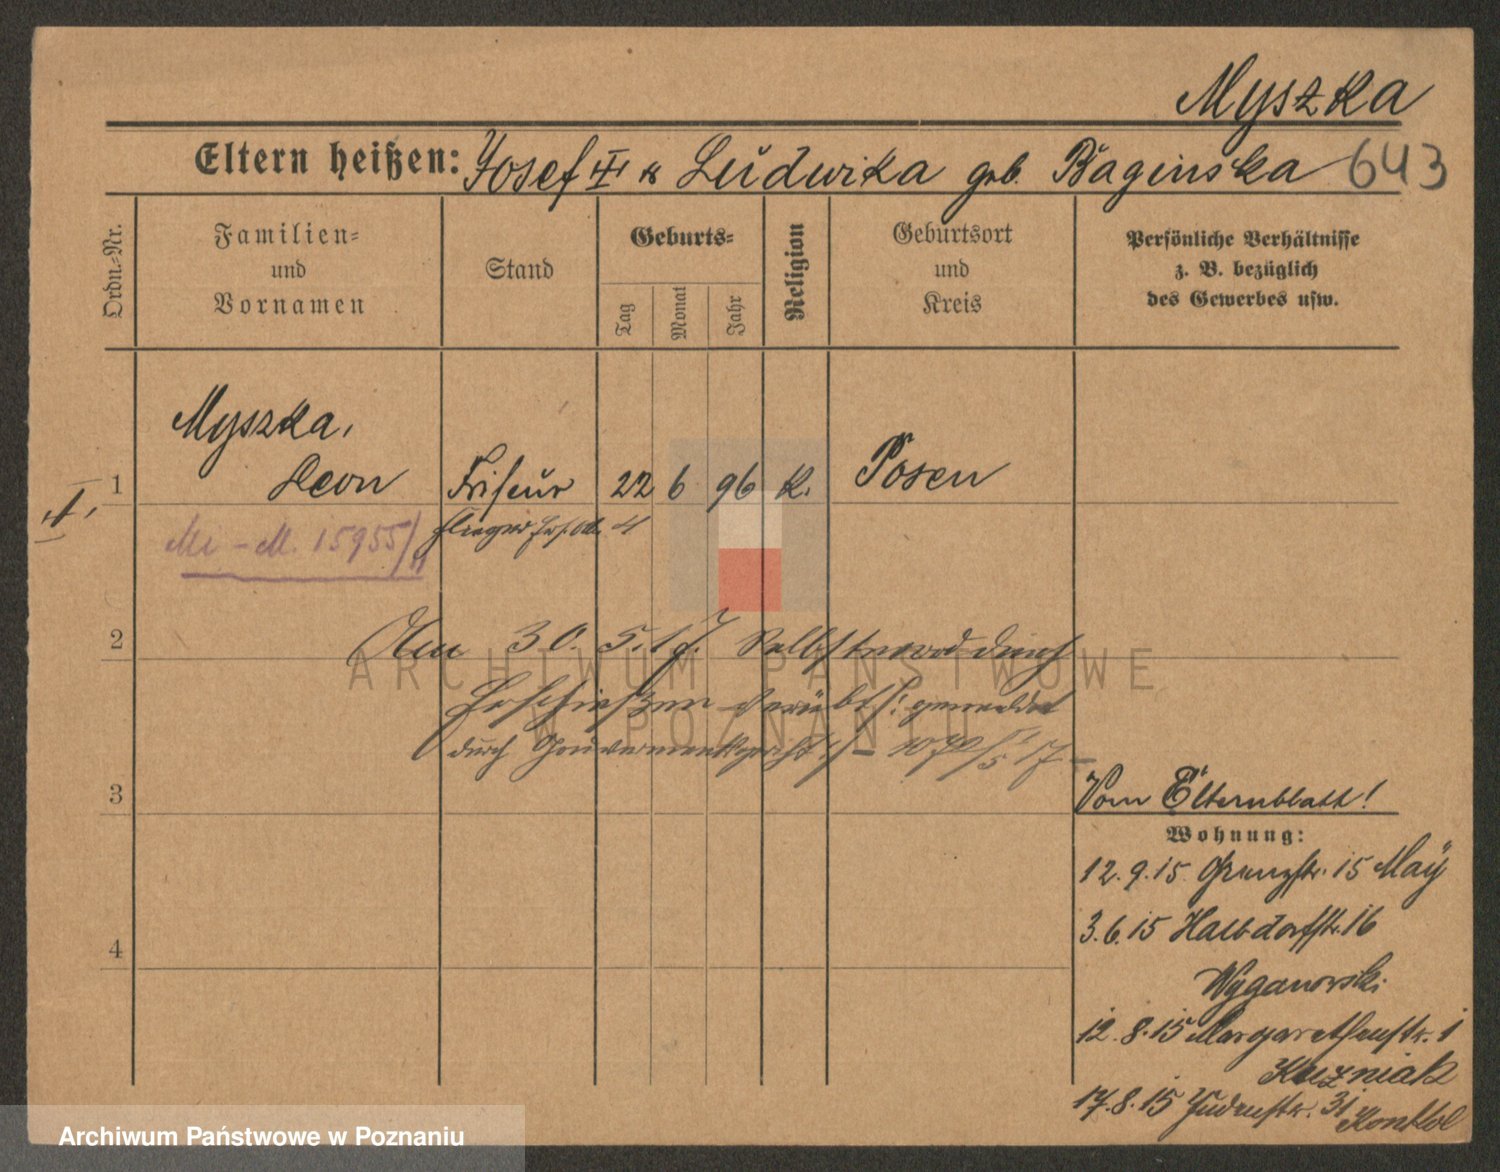 Myszka
Eltern heißen: Josef III u Ludwika geb. Baginska 643
Ordn.-Nr.
Familien-
und
Vornamen
Stand
Geburts-
Tag
Monat
Jahr
Religion
Geburtsort
und
Kreis
Persönliche Verhältnisse
z. B. bezüglich
des Gewerbes usw.
Myszka,
1 Leon Friseur 22 6 96 K. Posen
Mi-M. 15955/11 Flieger Ers. Abt. 4
2 Am 30. 5. 17. Selbstmord durch
Erschießen verübt! gemeldet
durch Gouvernementsgericht
3
Vom Elternblatt!
Wohnung:
12. 9. 15 Grenzstr. 15 May
3. 6. 15 Halbdorfstr. 16
4
Wyganowski
12. 8. 15 Margarethenstr. 1
Kuzniak
17. 8. 15 Judenstr. 31
ARCHIWUM PAŃSTWOWE
W POZNANIU
Archiwum Państwowe w Poznaniu